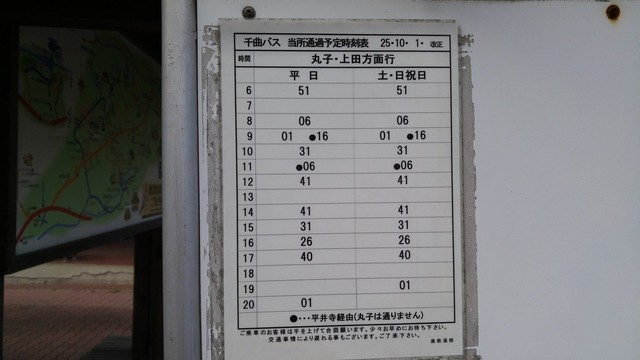 千曲バス 当所通過予定時刻表 25・10・1・改正
時間 丸子・上田方面行
平日 土・日祝日
6 51 51
7
8 06 06
9 01 ●16 01 ●16
10 31 31
11 ●06 ●06
12 41 41
13
14 41 41
15 31 31
16 26 26
17 40 40
18
19 01
20 01
●・・・平井寺経由(丸子は通りません)
ご乗車のお客様は手を上げて合図願います。少々お早めにお待ち下さい。
交通事情により遅れる事もございます。ご了承下さい。